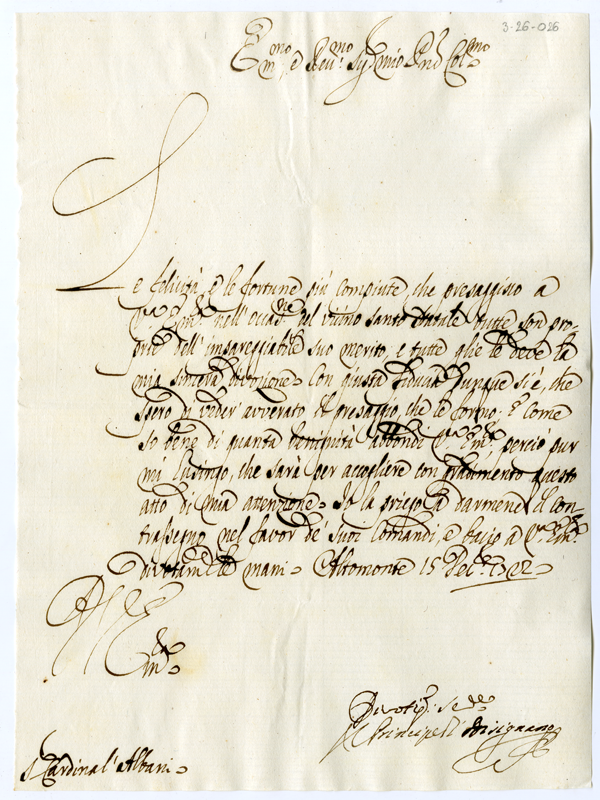 3-26-026
Em.mo e Rev.mo Sig.r mio P.ron Col.mo
Le felicità, e le fortune più compiute, che presaggisco a
V.ra Em.za nell'occas.ne del vicino santo Natale tutte son pro-
prie dell'impareggiabile suo merito, e tutte glie le deve la
mia sincera divozione. Con giusta fiducia dunque si è, che
spero di veder avverato il presaggio, che le formo; e come
so bene di quanta benignità abbondi V.ra Em.za, perciò pur
mi lusingo, che sarà per accogliere con gradimento questo
atto di mia attenzione. Io la priego a darmene il con-
trassegno nel favor de' suoi comandi, e bajo a V.ra Em.za
divotam.te le mani. Altomonte 15 Dec.re 1722.
Em.za
Divotis.o Se.re
Il Principe di Bisignano
S. Cardinal' Albani.